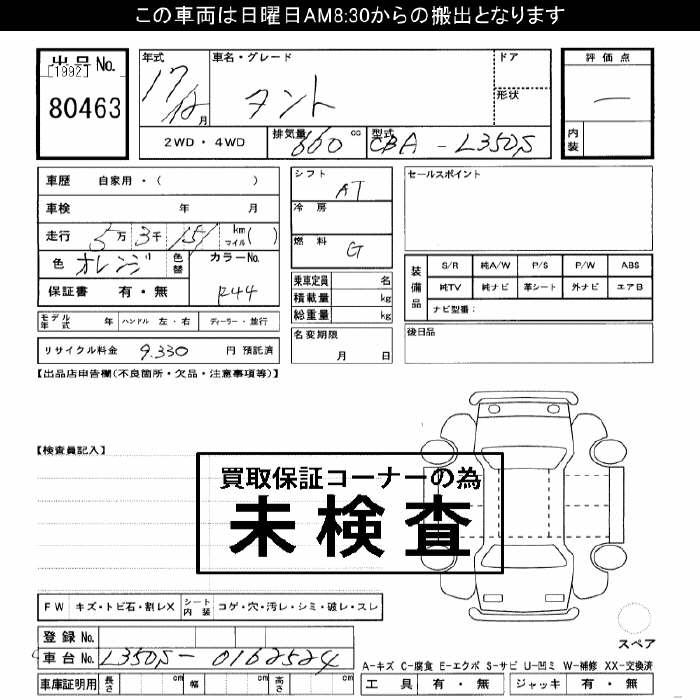 この車両は日曜日AM8:30からの搬出となります
出品No.
[1992]
80463
年式 車名・グレード ドア 評価点
17 12月 タント 形状 一
内装
2WD・4WD 排気量 660 cc 型式 CBA-L350S
車歴 自家用・( ) シフト AT セールスポイント
車検 年 月 冷房
走行 5万3千151 km マイル( ) 燃料 G
色 オレンジ 色替 カラーNo. R44
保証書 有・無
装備品 S/R 純A/W P/S P/W ABS
純TV 純ナビ 革シート 外ナビ エアB
ナビ型番:
乗車定員 名
積載量 kg
総重量 kg
モデル年式 年 ハンドル 左・右 ディーラー・並行
名変期限 月 日 後日品
リサイクル料金 9,330 円 預託済
【出品店申告欄(不良箇所・欠品・注意事項等)】
【検査員記入】
買取保証コーナーの為
未検査
FW キズ・トビ石・割レX シート内装 コゲ・穴・汚レ・シミ・破レ・スレ
登録No.
車台No. L350S-0162524
スペア
A-キズ C-腐食 E-エクボ S-サビ U-凹ミ W-補修 XX-交換済
車庫証明用 長さ cm 幅 cm 高さ cm 工具 有・無 ジャッキ 有・無